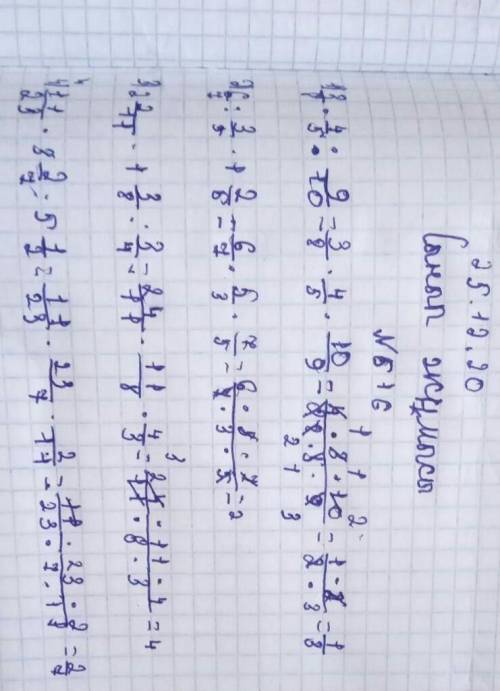 25.12.20
Сынап жұмысы
N 516
1) 3/8 · 4/5 : 9/10 = 3/8 · 4/5 · 10/9 = 1·2/2·3 = 1/3
2) 6/7 : 3/5 · 1 2/5 = 6/7 · 5/3 · 7/5 = 6·5·7/7·3·5 = 2
3) 2 2/11 · 1 3/8 : 3/4 = 24/11 · 11/8 · 4/3 = 24·11·4/11·8·3 = 4
4) 11/23 · 3 2/7 : 5 1/2 = 11/23 · 23/7 · 2/11 = 11·23·2/23·7·11 = 2/7